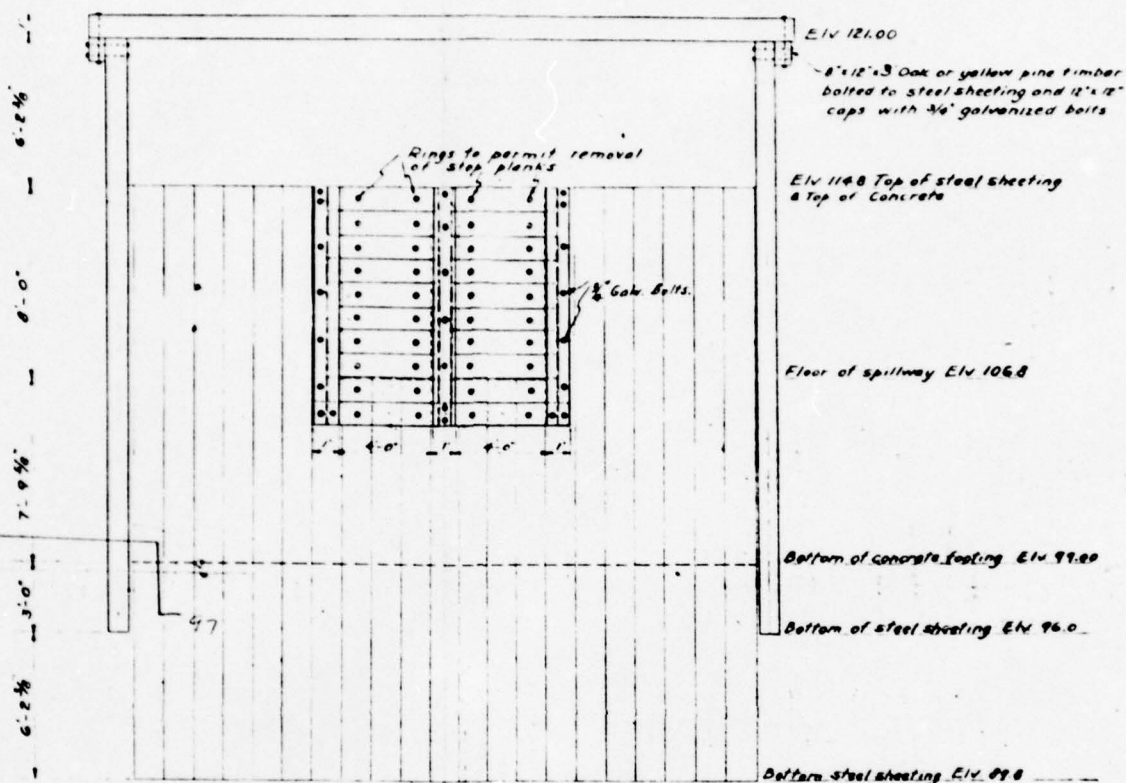 Elv 121.00
8"x12"x3' Oak or yellow pine timber
bolted to steel sheeting and 12"x12"
caps with 3/4" galvanized bolts
Rings to permit removal
of stop planks
Elv 114.8 Top of steel sheeting
& Top of Concrete
3/4" Galv. Bolts.
Floor of spillway Elv 106.8
1' 4'-0" 1' 4'-0" 1'
Bottom of concrete footing Elv 99.00
97
Bottom of steel sheeting Elv 96.0
Bottom steel sheeting Elv 89.8
1'
8'-0"
3'-0"